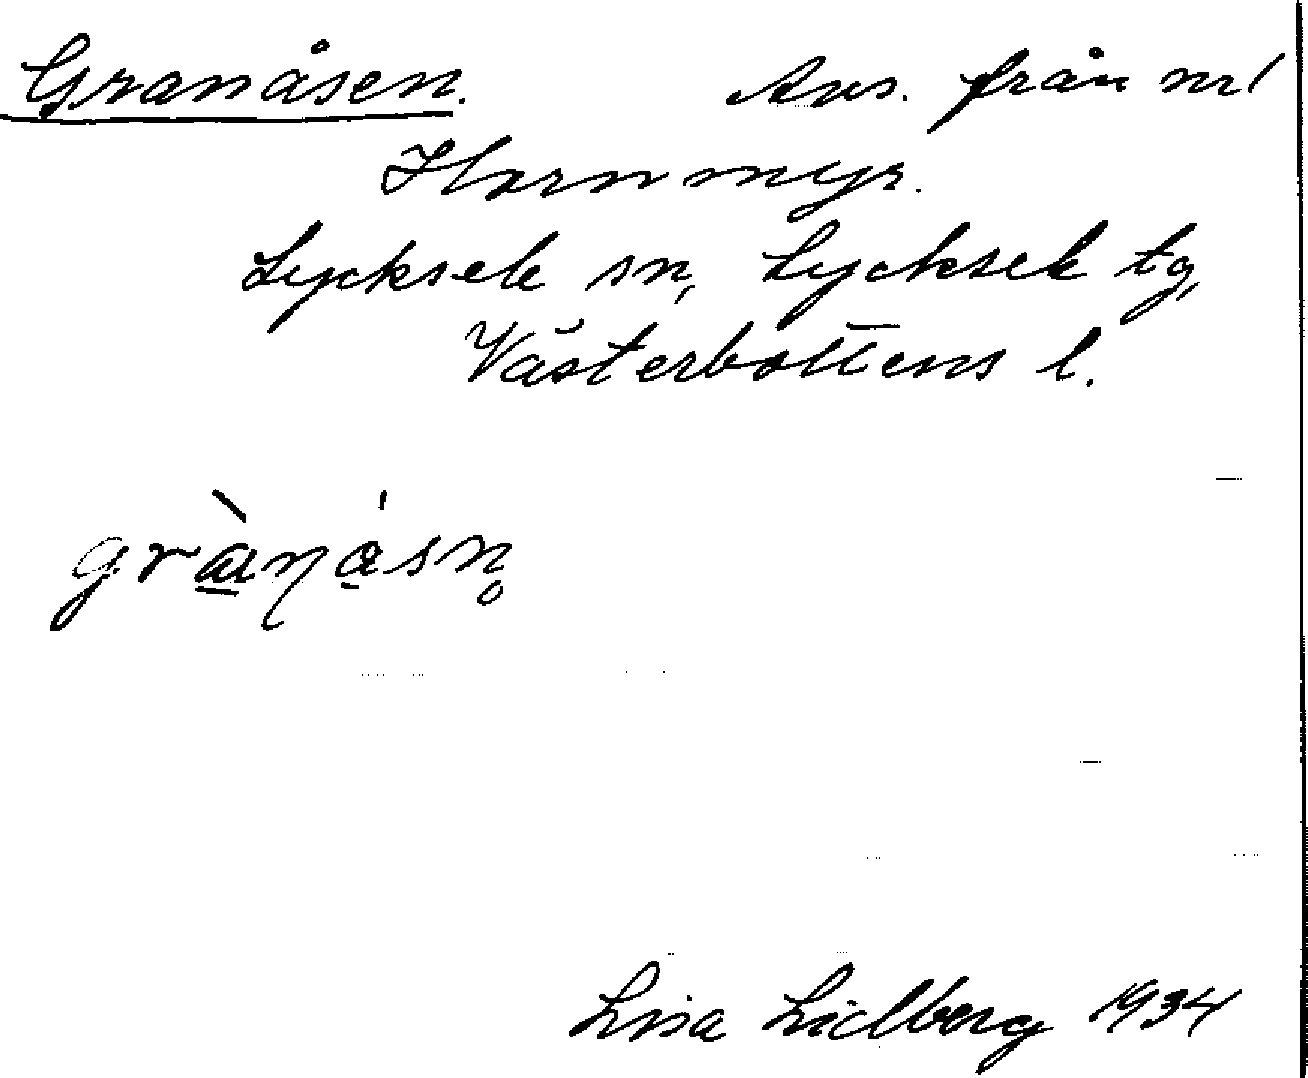 Granåsen. Avs. från nr 1
Hornmyr.
Lycksele sn, Lycksele tg,
Västerbottens l.
grànásn̥
Lisa Lidberg 1934